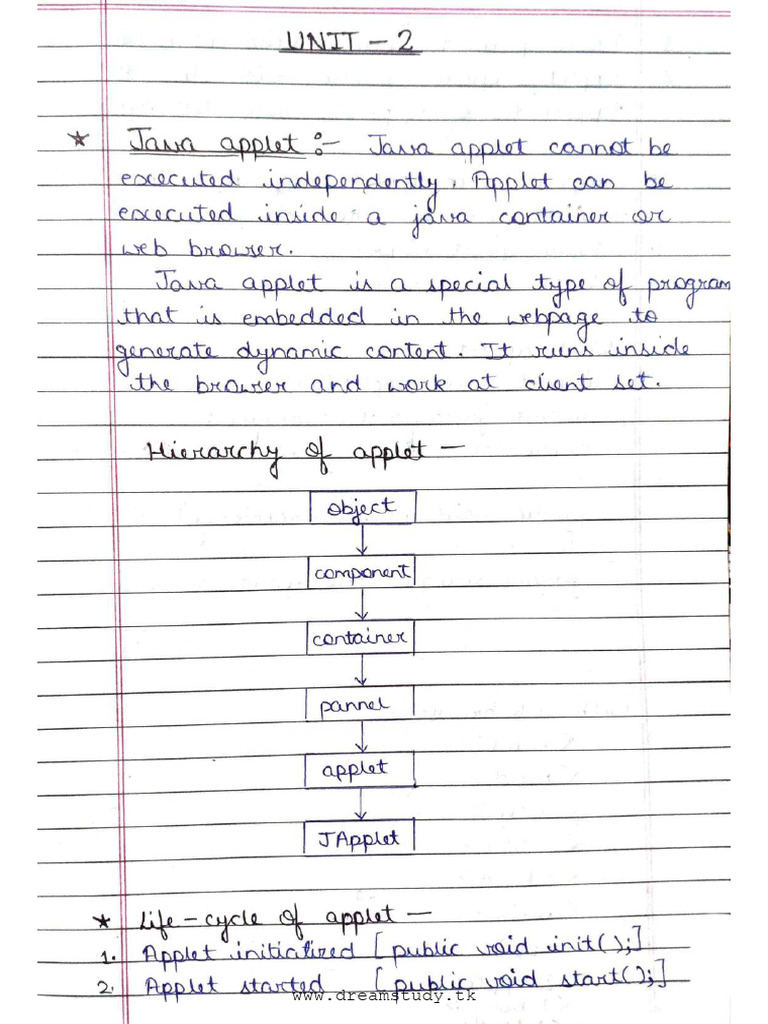 UNIT - 2
* Java applet :- Java applet cannot be
executed independently, Applet can be
executed inside a java container or
web browser.
Java applet is a special type of program
that is embedded in the webpage to
generate dynamic content. It runs inside
the browser and work at client set.
Hierarchy of applet -
object
component
container
pannel
applet
JApplet
* Life-cycle of applet -
1. Applet initialized [public void init();]
2. Applet started [public void start();]
www.dreamstudy.tk